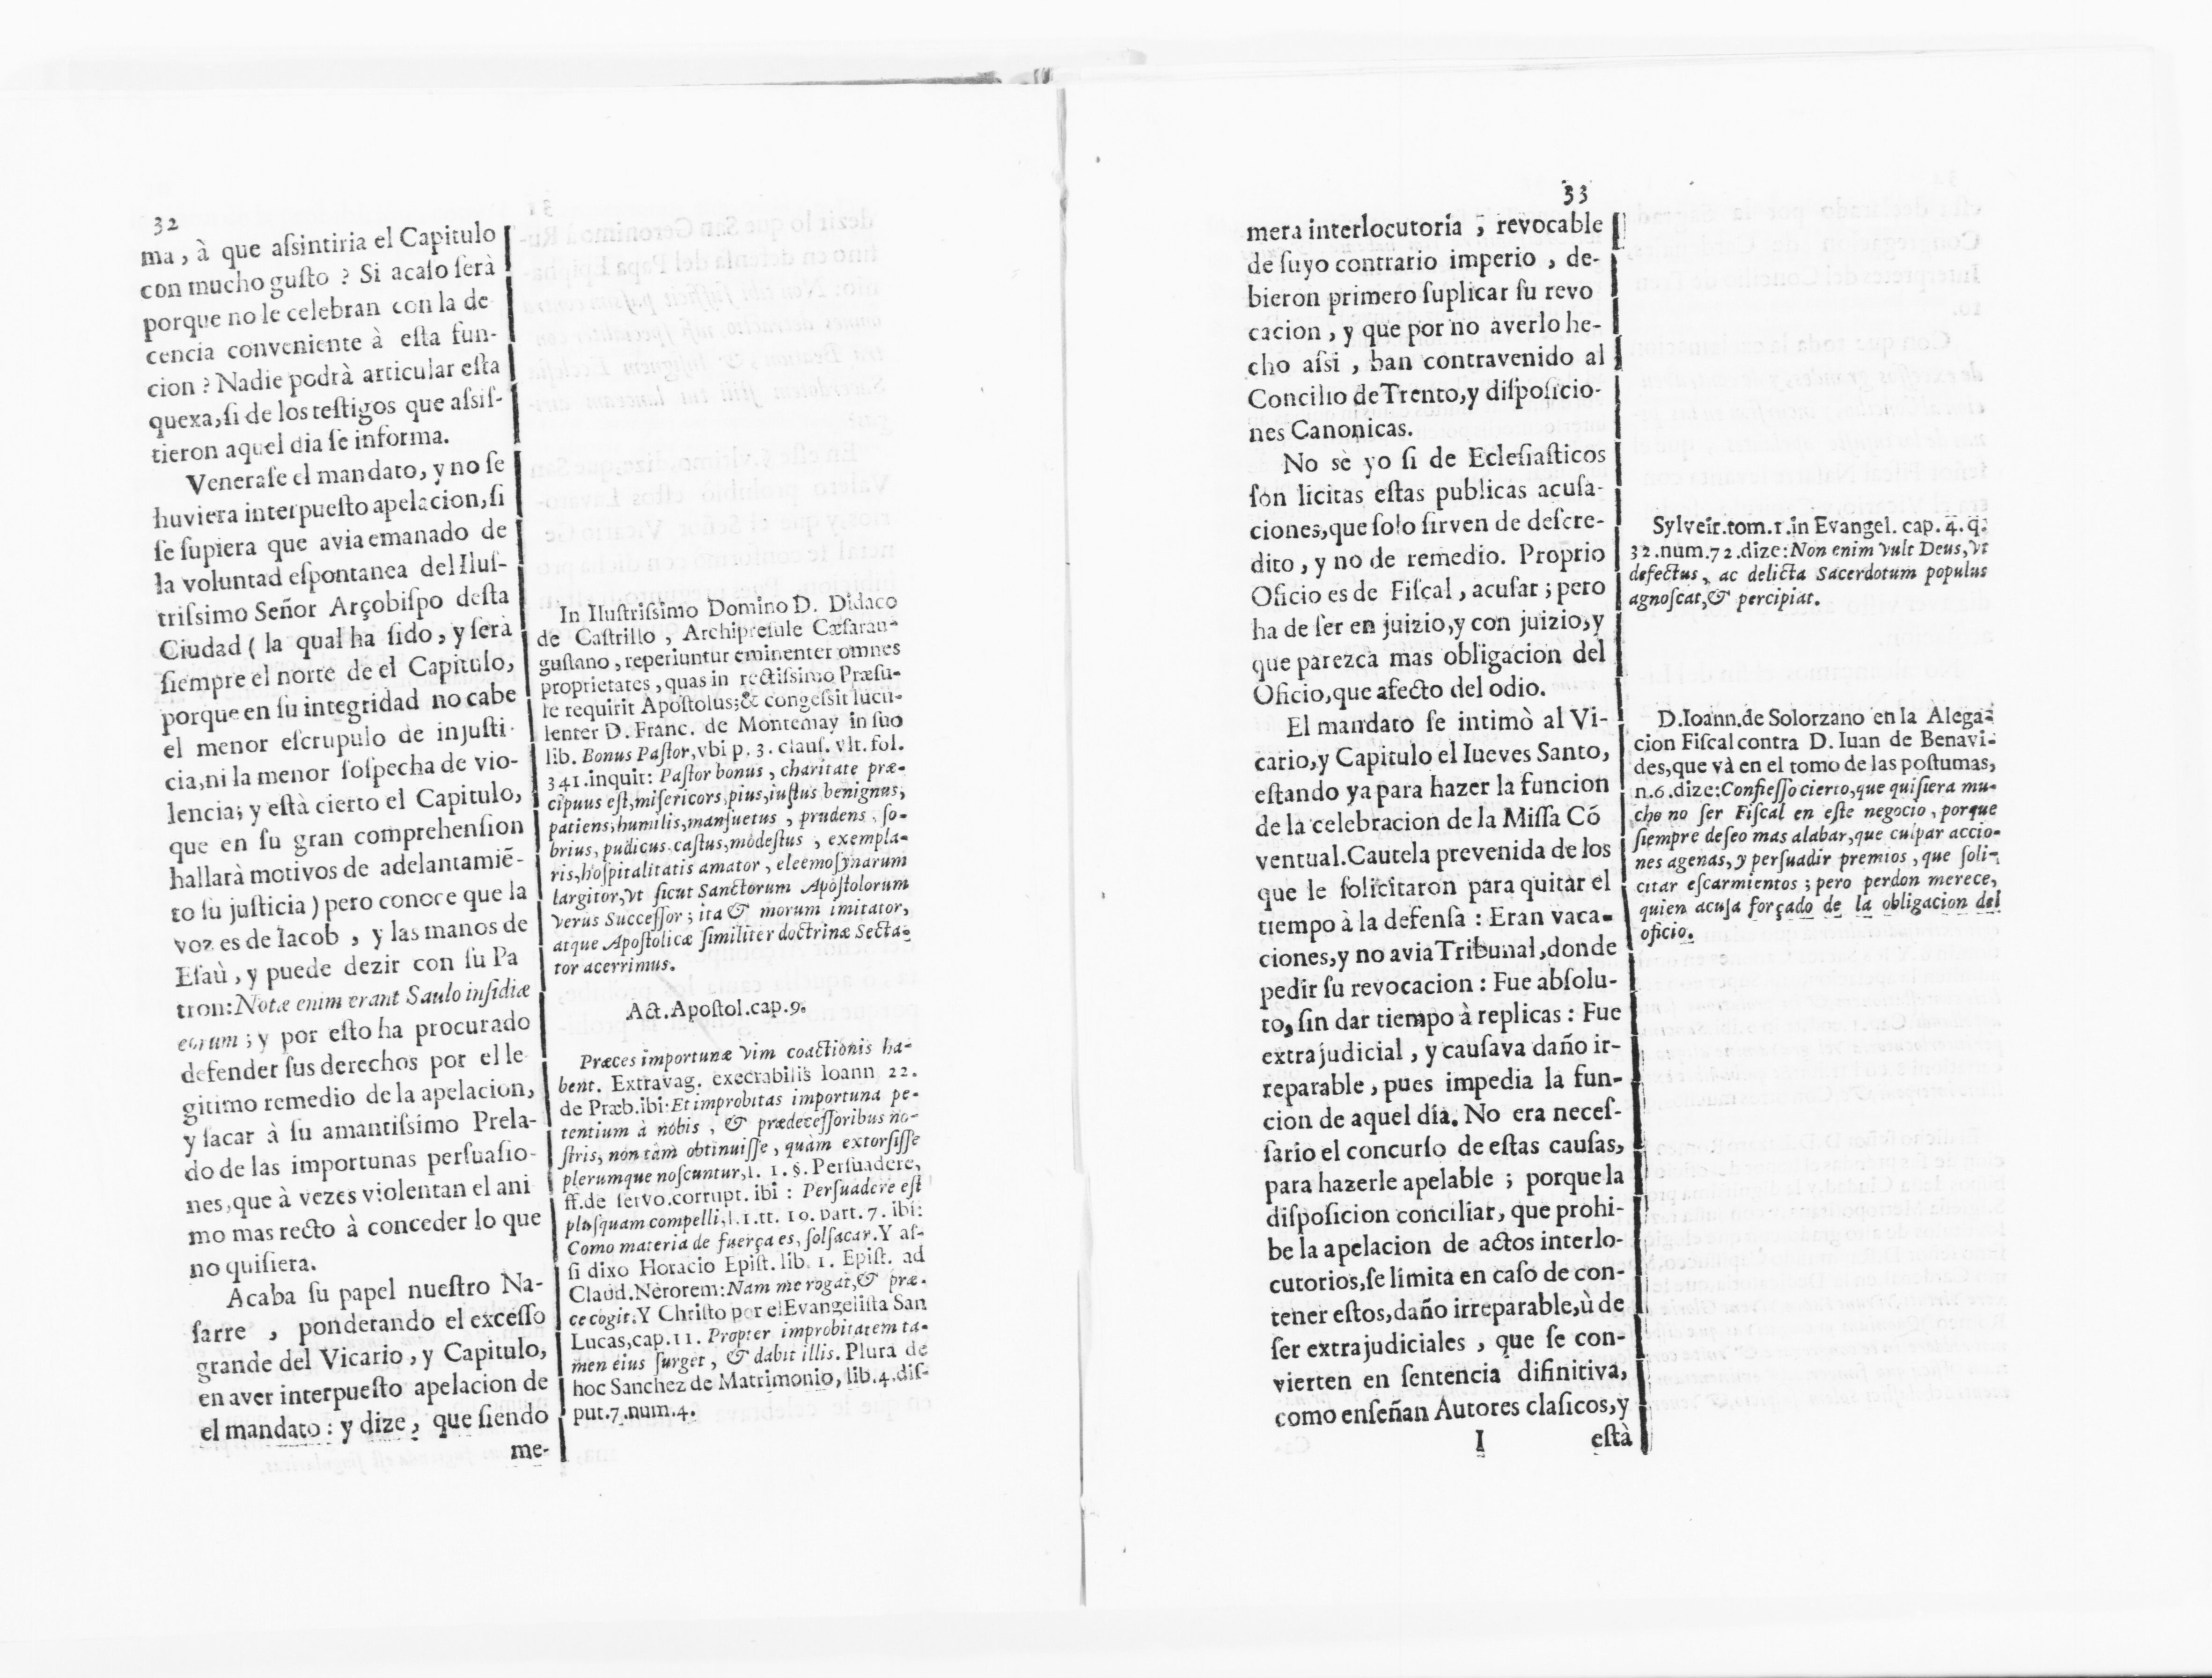 32
ma, à que aſsintiria el Capitulo
con mucho guſto ? Si acaſo ſerà
porque no le celebran con la de
cencia conveniente à eſta fun-
cion ? Nadie podrà articular eſta
quexa, ſi de los teſtigos que aſsiſ-
tieron aquel dia ſe informa.
Veneraſe el mandato, y no ſe
huviera interpueſto apelacion, ſi
ſe ſupiera que avia emanado de
la voluntad eſpontanea del Iluſ-
triſsimo Señor Arçobiſpo deſta
Ciudad ( la qual ha ſido, y ſerà
ſiempre el norte de el Capitulo,
porque en ſu integridad no cabe
el menor eſcrupulo de injuſti-
cia, ni la menor ſoſpecha de vio-
lencia; y eſtà cierto el Capitulo,
que en ſu gran comprehenſion
hallarà motivos de adelantamiẽ-
to ſu juſticia ) pero conoce que la
voz es de Iacob , y las manos de
Eſaù, y puede dezir con ſu Pa
tron: Notæ enim erant Saulo inſidiæ
eorum ; y por eſto ha procurado
defender ſus derechos por el le
gitimo remedio de la apelacion,
y ſacar à ſu amantiſsimo Prela-
do de las importunas perſuaſio-
nes, que à vezes violentan el ani
mo mas recto à conceder lo que
no quiſiera.
Acaba ſu papel nueſtro Na-
ſarre , ponderando el exceſſo
grande del Vicario, y Capitulo,
en aver interpueſto apelacion de
el mandato: y dize, que ſiendo
me-
In Iluſtriſsimo Domino D. Didaco
de Caſtrillo , Archipreſule Cæſarau-
guſtano, reperiuntur eminenter omnes
proprietates, quas in rectiſsimo Præſu-
le requirit Apoſtolus; & congeſsit lucu-
lenter D. Franc. de Montemay in ſuo
lib. Bonus Paſtor, vbi p. 3. clauſ. vlt. fol.
341. inquit: Paſtor bonus , charitate præ-
cipuus eſt, miſericors, pius, iuſtus benignus,
patiens, humilis, manſuetus , prudens , ſo-
brius, pudicus caſtus, modeſtus , exempla-
ris, hoſpitalitatis amator , eleemoſynarum
largitor, vt ſicut Sanctorum Apoſtolorum
verus Succeſſor ; ita & morum imitator,
atque Apoſtolicæ ſimiliter doctrinæ Secta-
tor acerrimus.
Act. Apoſtol. cap. 9.
Præces importunæ vim coactionis ha-
bent. Extravag. execrabilis Ioann 22.
de Præb. ibi: Et improbitas importuna pe-
tentium à nobis , & prædeceſſoribus no-
ſtris, non tàm obtinuiſſe , quàm extorſiſſe
plerumque noſcuntur, l. 1. §. Perſuadere,
ff. de ſervo. corrupt. ibi : Perſuadere eſt
pluſquam compelli, l. 1. tt. 10. part. 7. ibi:
Como materia de fuerça es, ſolſacar. Y aſ-
ſi dixo Horacio Epiſt. lib. 1. Epiſt. ad
Claud. Nerorem: Nam me rogat, & præ-
ce cogit. Y Chriſto por el Evangeliſta San
Lucas, cap. 11. Propter improbitatem ta-
men eius ſurget , & dabit illis. Plura de
hoc Sanchez de Matrimonio, lib. 4. diſ-
put. 7. num. 4.
33
mera interlocutoria ; revocable
de ſuyo contrario imperio , de-
bieron primero ſuplicar ſu revo
cacion , y que por no averlo he-
cho aſsi , han contravenido al
Concilio de Trento, y diſpoſicio-
nes Canonicas.
No sè yo ſi de Ecleſiaſticos
ſon licitas eſtas publicas acuſa-
ciones, que ſolo ſirven de deſcre-
dito , y no de remedio. Proprio
Oficio es de Fiſcal , acuſar ; pero
ha de ſer en juizio, y con juizio, y
que parezca mas obligacion del
Oficio, que afecto del odio.
El mandato ſe intimò al Vi-
cario, y Capitulo el Iueves Santo,
eſtando ya para hazer la funcion
de la celebracion de la Miſſa Cõ
ventual. Cautela prevenida de los
que le ſolicitaron para quitar el
tiempo à la defenſa : Eran vaca-
ciones, y no avia Tribunal, donde
pedir ſu revocacion : Fue abſolu-
to, ſin dar tiempo à replicas : Fue
extrajudicial , y cauſava daño ir-
reparable , pues impedia la fun-
cion de aquel dia. No era neceſ-
ſario el concurſo de eſtas cauſas,
para hazerle apelable ; porque la
diſpoſicion conciliar, que prohi-
be la apelacion de actos interlo-
cutorios, ſe limita en caſo de con-
tener eſtos, daño irreparable, ù de
ſer extrajudiciales , que ſe con-
vierten en ſentencia difinitiva,
como enſeñan Autores claſicos, y
I eſtà
Sylveir. tom. 1. in Evangel. cap. 4. q.
32. num. 72. dize: Non enim vult Deus, vt
defectus , ac delicta Sacerdotum populus
agnoſcat, & percipiat.
D. Ioann. de Solorzano en la Alega-
cion Fiſcal contra D. Iuan de Benavi-
des, que và en el tomo de las poſtumas,
n. 6. dize: Confieſſo cierto, que quiſiera mu-
cho no ſer Fiſcal en eſte negocio, porque
ſiempre deſeo mas alabar, que culpar accio-
nes agenas, y perſuadir premios , que ſoli-
citar eſcarmientos ; pero perdon merece,
quien acuſa forçado de la obligacion del
oficio.